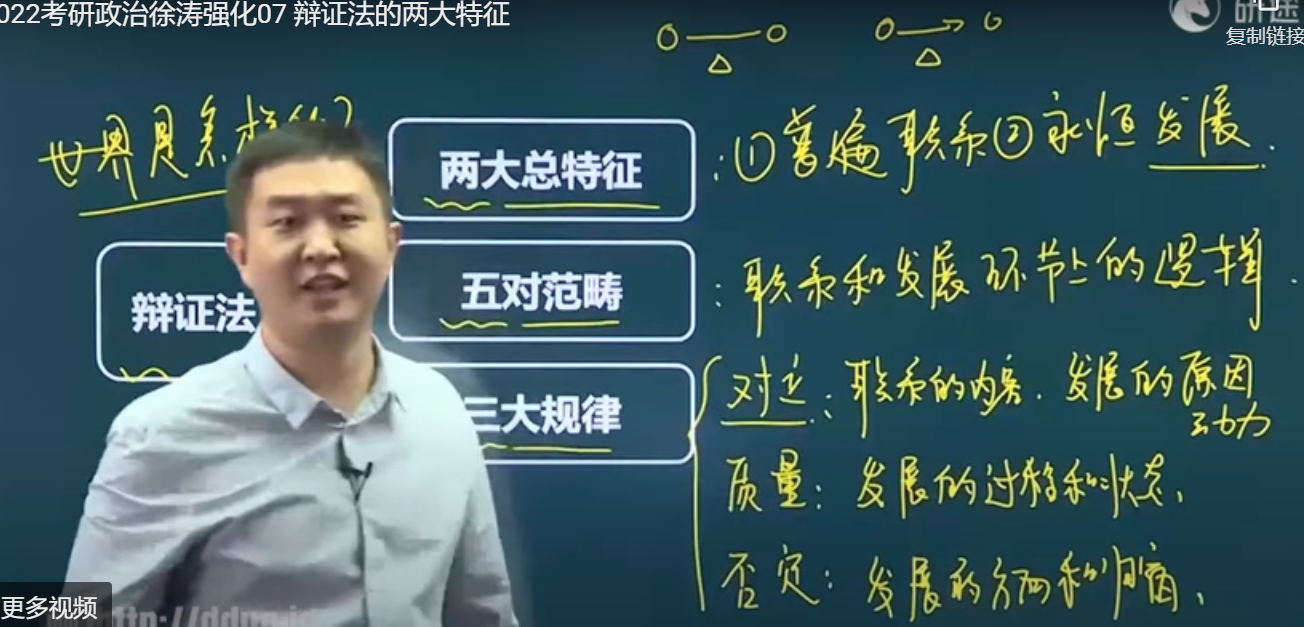 022考研政治徐涛强化07 辩证法的两大特征
研途
复制链接
世界是怎样的?
两大总特征
:①普遍联系②永恒发展.
辩证法
五对范畴
:联系和发展环节上的逻辑.
三大规律
对立:联系的内容.发展的原因
动力
质量:发展的过程和状态,
否定:发展的方向和
更多视频